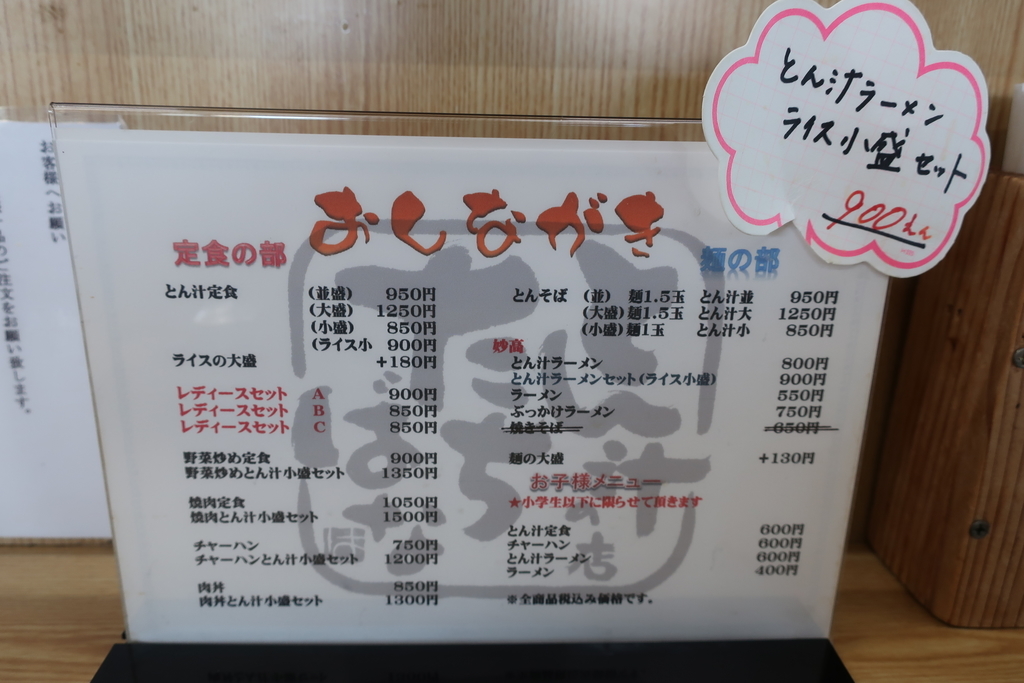 とん汁ラーメン
ライス小盛セット
900えん
お客様へお願い
注文をお願い致します。
おしながき
定食の部
とん汁定食 (並盛) 950円
(大盛) 1250円
(小盛) 850円
(ライス小 900円
ライスの大盛 +180円
レディースセット A 900円
レディースセット B 850円
レディースセット C 850円
野菜炒め定食 900円
野菜炒めとん汁小盛セット 1350円
焼肉定食 1050円
焼肉とん汁小盛セット 1500円
チャーハン 750円
チャーハンとん汁小盛セット 1200円
肉丼 850円
肉丼とん汁小盛セット 1300円
麺の部
とんそば (並) 麺1.5玉 とん汁並 950円
(大盛) 麺1.5玉 とん汁大 1250円
(小盛) 麺1玉 とん汁小 850円
妙高
とん汁ラーメン 800円
とん汁ラーメンセット(ライス小盛) 900円
ラーメン 550円
ぶっかけラーメン 750円
焼きそば 650円
麺の大盛 +130円
お子様メニュー
★小学生以下に限らせて頂きます
とん汁定食 600円
チャーハン 600円
とん汁ラーメン 600円
ラーメン 400円
※全商品税込み価格です。